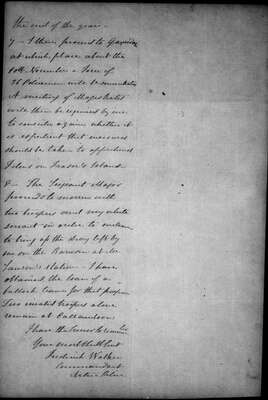 the end of the year.
7 - I then proceed to Gayndah
at which place about the
10th November a force of
36 Policemen will be
A meeting of Magistrates
will then be requested by me
to consider again whether it
is expedient that measures
should be taken to apprehend
Felons on Frasers Island.
8 - The Sergeant Major
proceeds to morrow with
two troopers and my white
servant in order to
to bring up the dray left by
me on the Barwon at Mr
Lawson's station - I have
obtained the loan of a
bullock team for that purpose
Two troopers alone
remain at Callandoon
I have the honor to remain Sir
Your most Obdt Servt
Frederick Walker
Commandant
Native Police